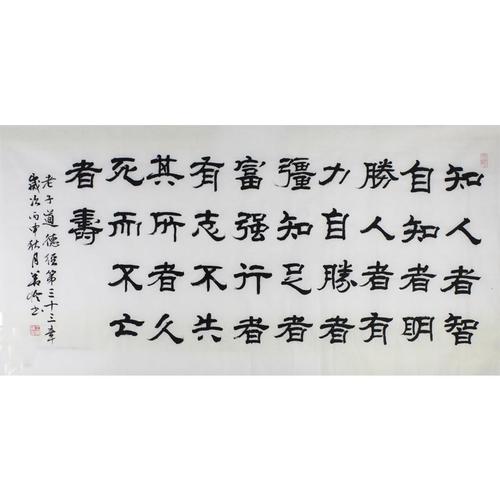 知人者智
自知者明
勝人者有
力自勝者
彊知足者
富强行者
有志不失
其所者久
死而不亡
者壽
老子道德經第三十三章
歲次丙申秋月书